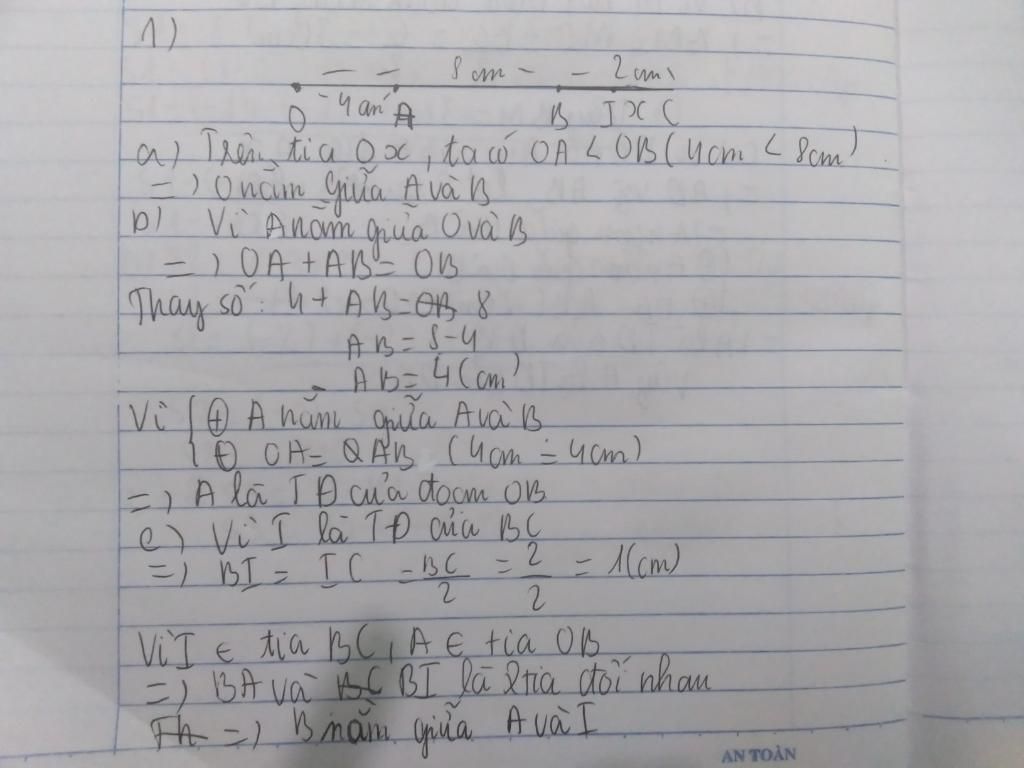 1)
8cm 2cm
O 4cm A B I x C
a) Trên tia Ox, ta có OA < OB (4cm < 8cm)
=) O nằm giữa A và B
b) Vì A nằm giữa O và B
=) OA + AB = OB
Thay số: 4 + AB = OB 8
AB = 8-4
AB = 4(cm)
Vì { (+) A nằm giữa A và B
(+) OA = AB (4cm = 4cm)
=) A là TĐ của đoạn OB
c) Vì I là TĐ của BC
=) BI = IC = BC/2 = 2/2 = 1(cm)
Vì I ∈ tia BC, A ∈ tia OB
=) BA và BC BI là 2 tia đối nhau
=) B nằm giữa A và I
AN TOÀN